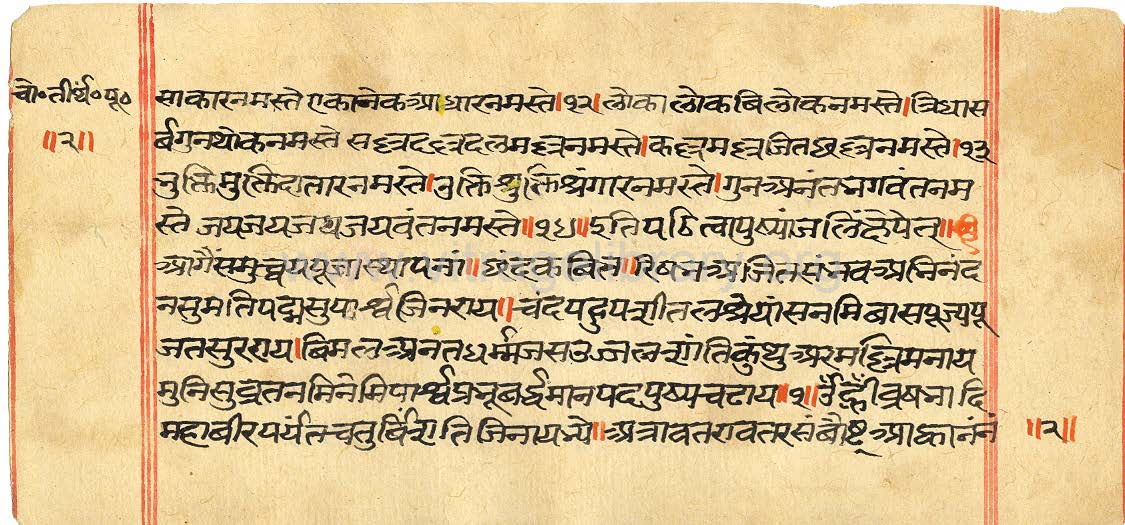 चो॰तीर्थ॰पू॰
॥२॥
साकारनमस्ते एकानेकआधारनमस्ते।१२।लोकालोकबिलोकनमस्ते।त्रिधास
र्बगुनथोकनमस्ते सल्लदल्लदलमल्लनमस्ते।कल्लमल्लजितछल्लनमस्ते।१३
भुक्तिमुक्तिदातारनमस्ते।उक्तिश्रुक्तिश्रंगारनमस्ते।गुनअनंतभगवंतनम
स्ते जयजयजयजयवंतनमस्ते॥१४॥इतिपठित्वापुष्पांजलिंक्षेपेत्॥
आगैंसमुच्चयपूजास्थापना॥छंदकबित॥रिषभअजितसंभवअभिनंद
नसुमतिपद्मसुपार्श्वजिनराय॥चंदपहुपशीतलश्रेयांसनमिबासपूज्यपू
जतसुरराय।बिमलअनंतधर्म्मजसउज्जलशांतिकुंथुअरमल्लिमनाय
मुनिसुव्रतनमिनेमिपार्श्वप्रभूबर्द्धमानपदपुष्पचढाय॥१॥ॐह्रींव्रषभादि
महाबीरपर्यंतचतुर्विंशतिजिनायभ्ये॥अत्रावतरावतरसंबौष्ट्आह्वाननं
॥२॥